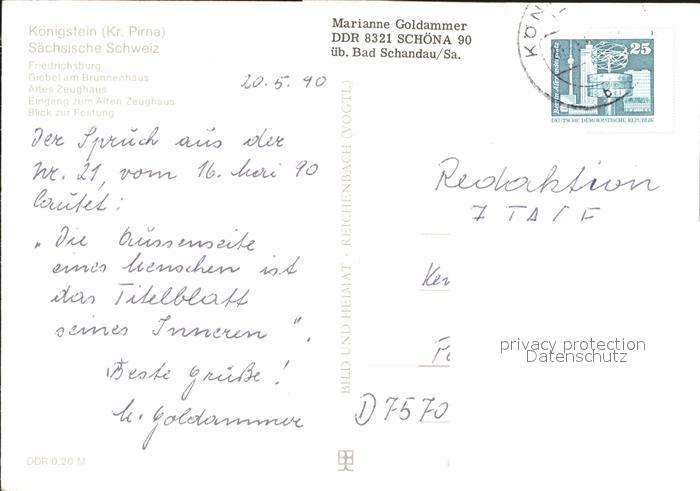 Königstein (Kr. Pirna)
Sächsische Schweiz
Friedrichsburg
Giebel am Brunnenhaus
Altes Zeughaus
Eingang zum Alten Zeughaus
Blick zur Festung
20.5.90
Der Spruch aus der
Nr. 21, vom 16. Mai 90
lautet:
„Die Aussenseite
eines Menschen ist
das Titelblatt
seines Inneren".
Beste Grüße!
M. Goldammer
DDR 0,20 M
BILD UND HEIMAT · REICHENBACH (VOGTL)
Marianne Goldammer
DDR 8321 SCHÖNA 90
üb. Bad Schandau/Sa.
KÖN
b
25
Berlin, Alexanderplatz
DEUTSCHE DEMOKRATISCHE REPUBLIK
Redaktion
7 TA
privacy protection
Datenschutz
D 7570